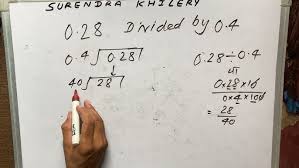 SURENDRA KHILERY
0.28 Divided by 0.4
0.4 ⟌ 0.28
40 ⟌ 28
0.28 ÷ 0.4
0.28 × 100
0.4 × 100
= 28
40